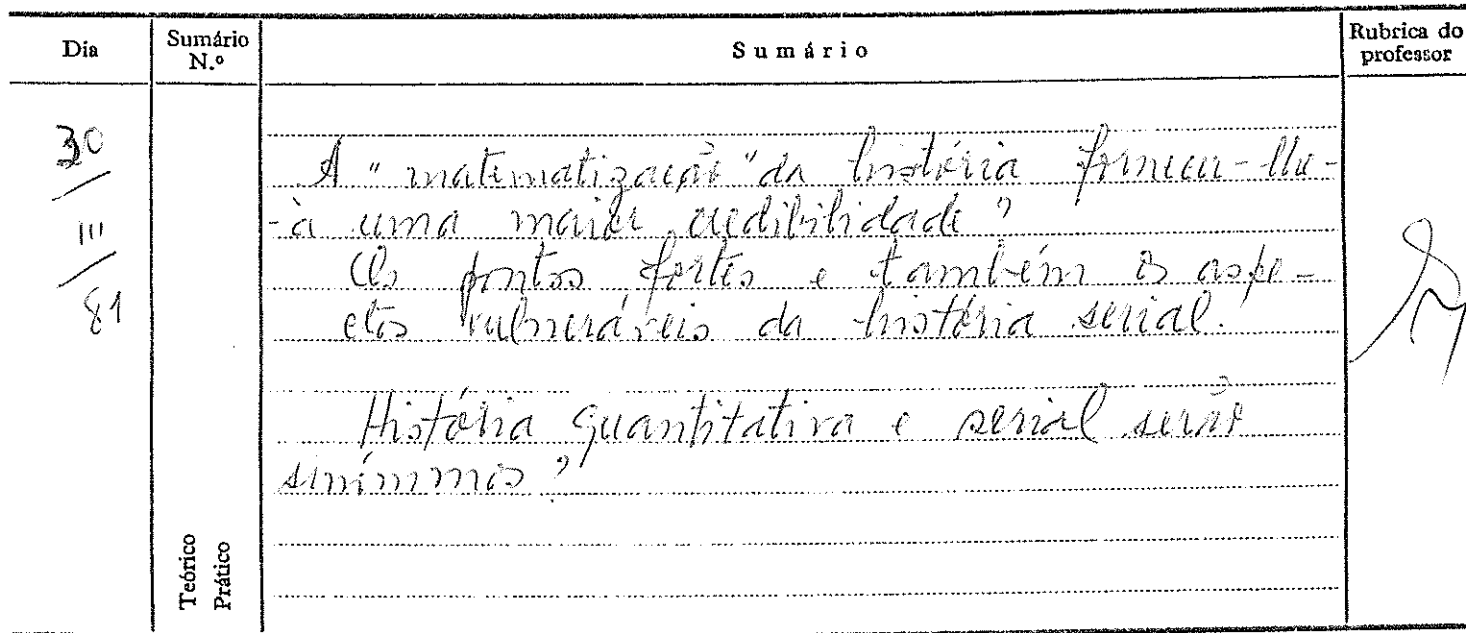 Dia
Sumário N.º
Sumário
Rubrica do professor
30
/
III
/
81
A "matematização" da história fornecer-lhe-
-á uma maior credibilidade?
Os pontos fortes e também os aspe-
ctos vulneráveis da história serial.
História quantitativa e serial serão
sinónimos?
Teórico
Prático